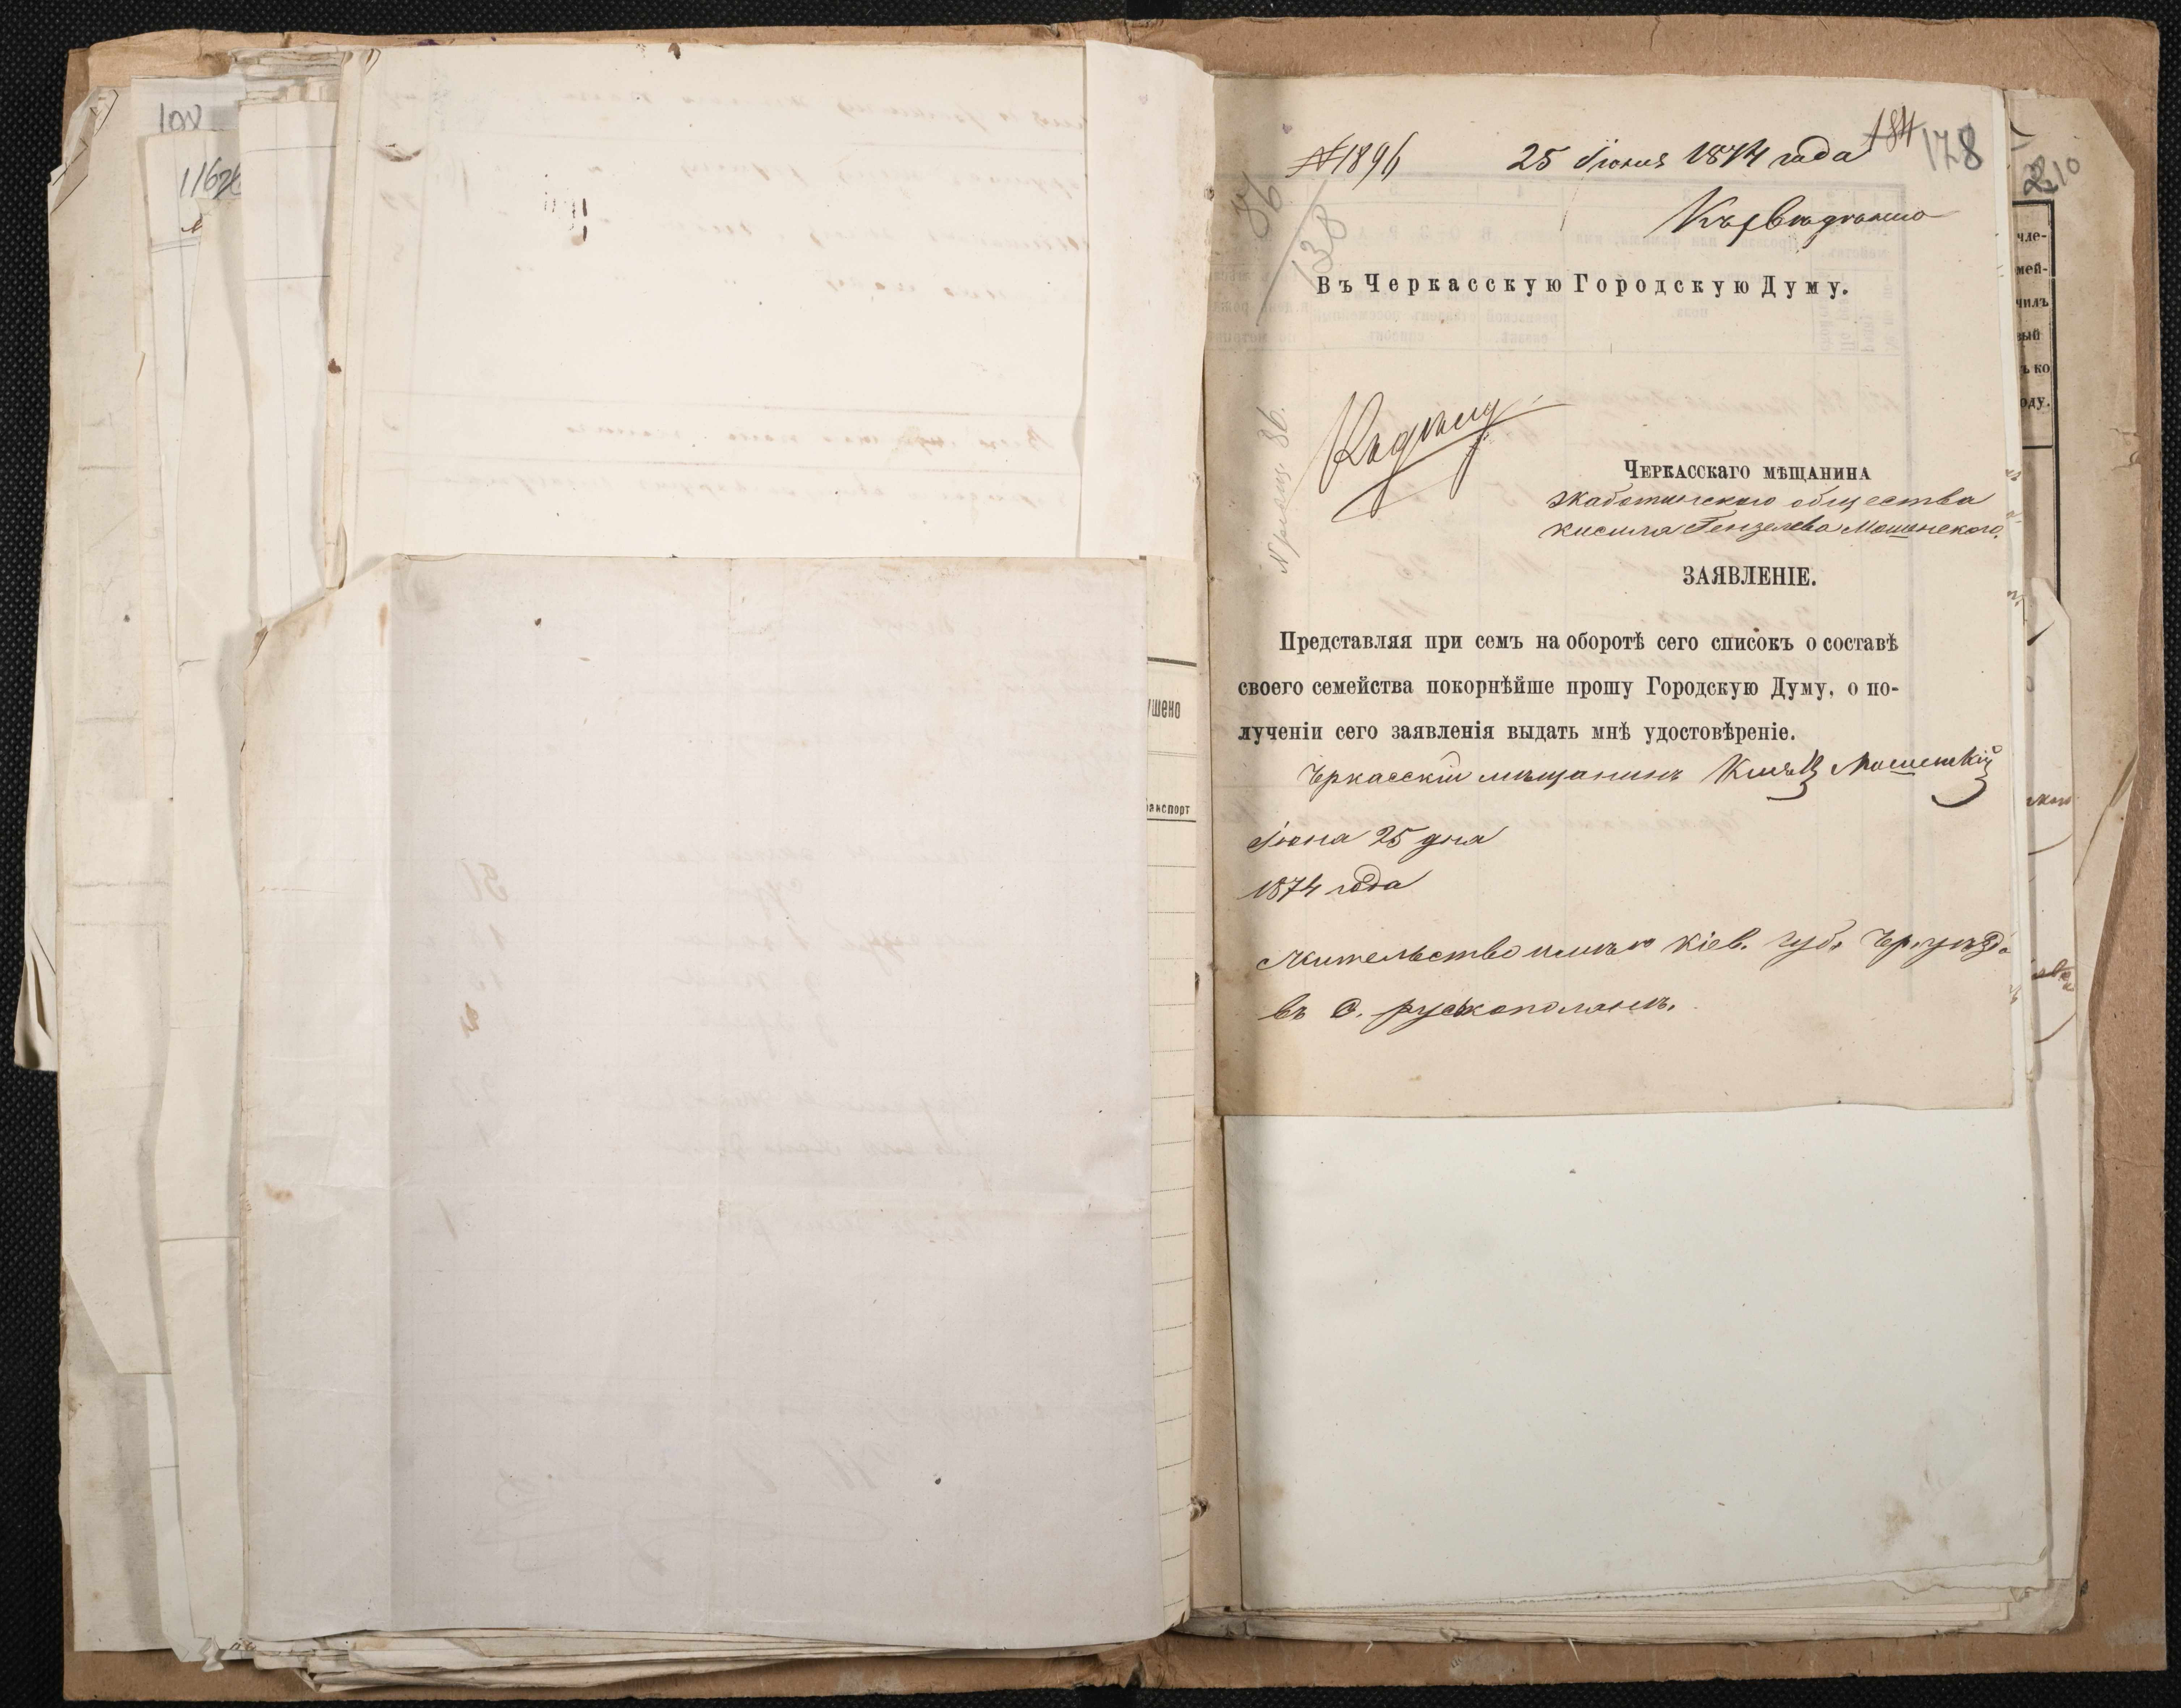 108
11626
ушено
транспорт
№1896
25 Іюня 1874 года
184
178
210
86
138
Въ Черкасскую Городскую Думу.
Къ дѣлу
86.
Черкасскаго мѣщанина
Жаботинскаго общества
Кисиля Гензелева Мошенскаго.
ЗАЯВЛЕНІЕ.
Представляя при семъ на оборотѣ сего списокъ о составѣ
своего семейства покорнѣйше прошу Городскую Думу, о по-
лученіи сего заявленія выдать мнѣ удостовѣреніе.
Черкасскій мѣщанинъ Мошенскій
Іюня 25 дня
1874 года
Жительство имѣю Кіев. губ. Чер. уѣзда
въ С. рускополянѣ.
чле-
мей-
чилъ
вый
ъ ко
оду.